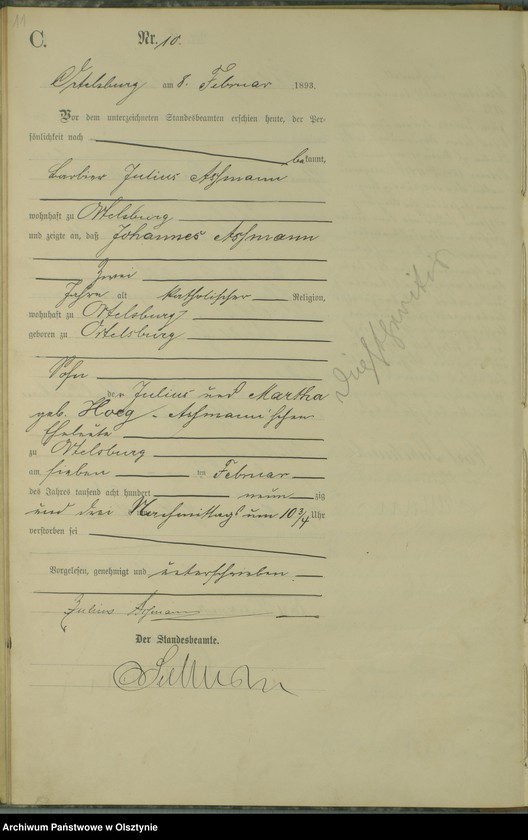 11
C.
Nr. 10.
Ortelsburg am 8. Februar 1893.
Vor dem unterzeichneten Standesbeamten erschien heute, der Per-
sönlichkeit nach
bekannt,
Barbier Julius Aßmann
wohnhaft zu Ortelsburg
und zeigte an, daß Johannes Aßmann
Zwei
Jahre alt katholischer Religion,
wohnhaft zu Ortelsburg
geboren zu Ortelsburg
Sohn
der Julius und Martha
geb. Hoog - Aßmann'schen
Eheleute
zu Ortelsburg
am sieben ten Februar
des Jahres tausend acht hundert neun zig
und drei Nachmittags um 10 3/4 Uhr
verstorben sei
Vorgelesen, genehmigt und unterschrieben
Julius Assmann
Der Standesbeamte.
Diphtheritis
Archiwum Państwowe w Olsztynie